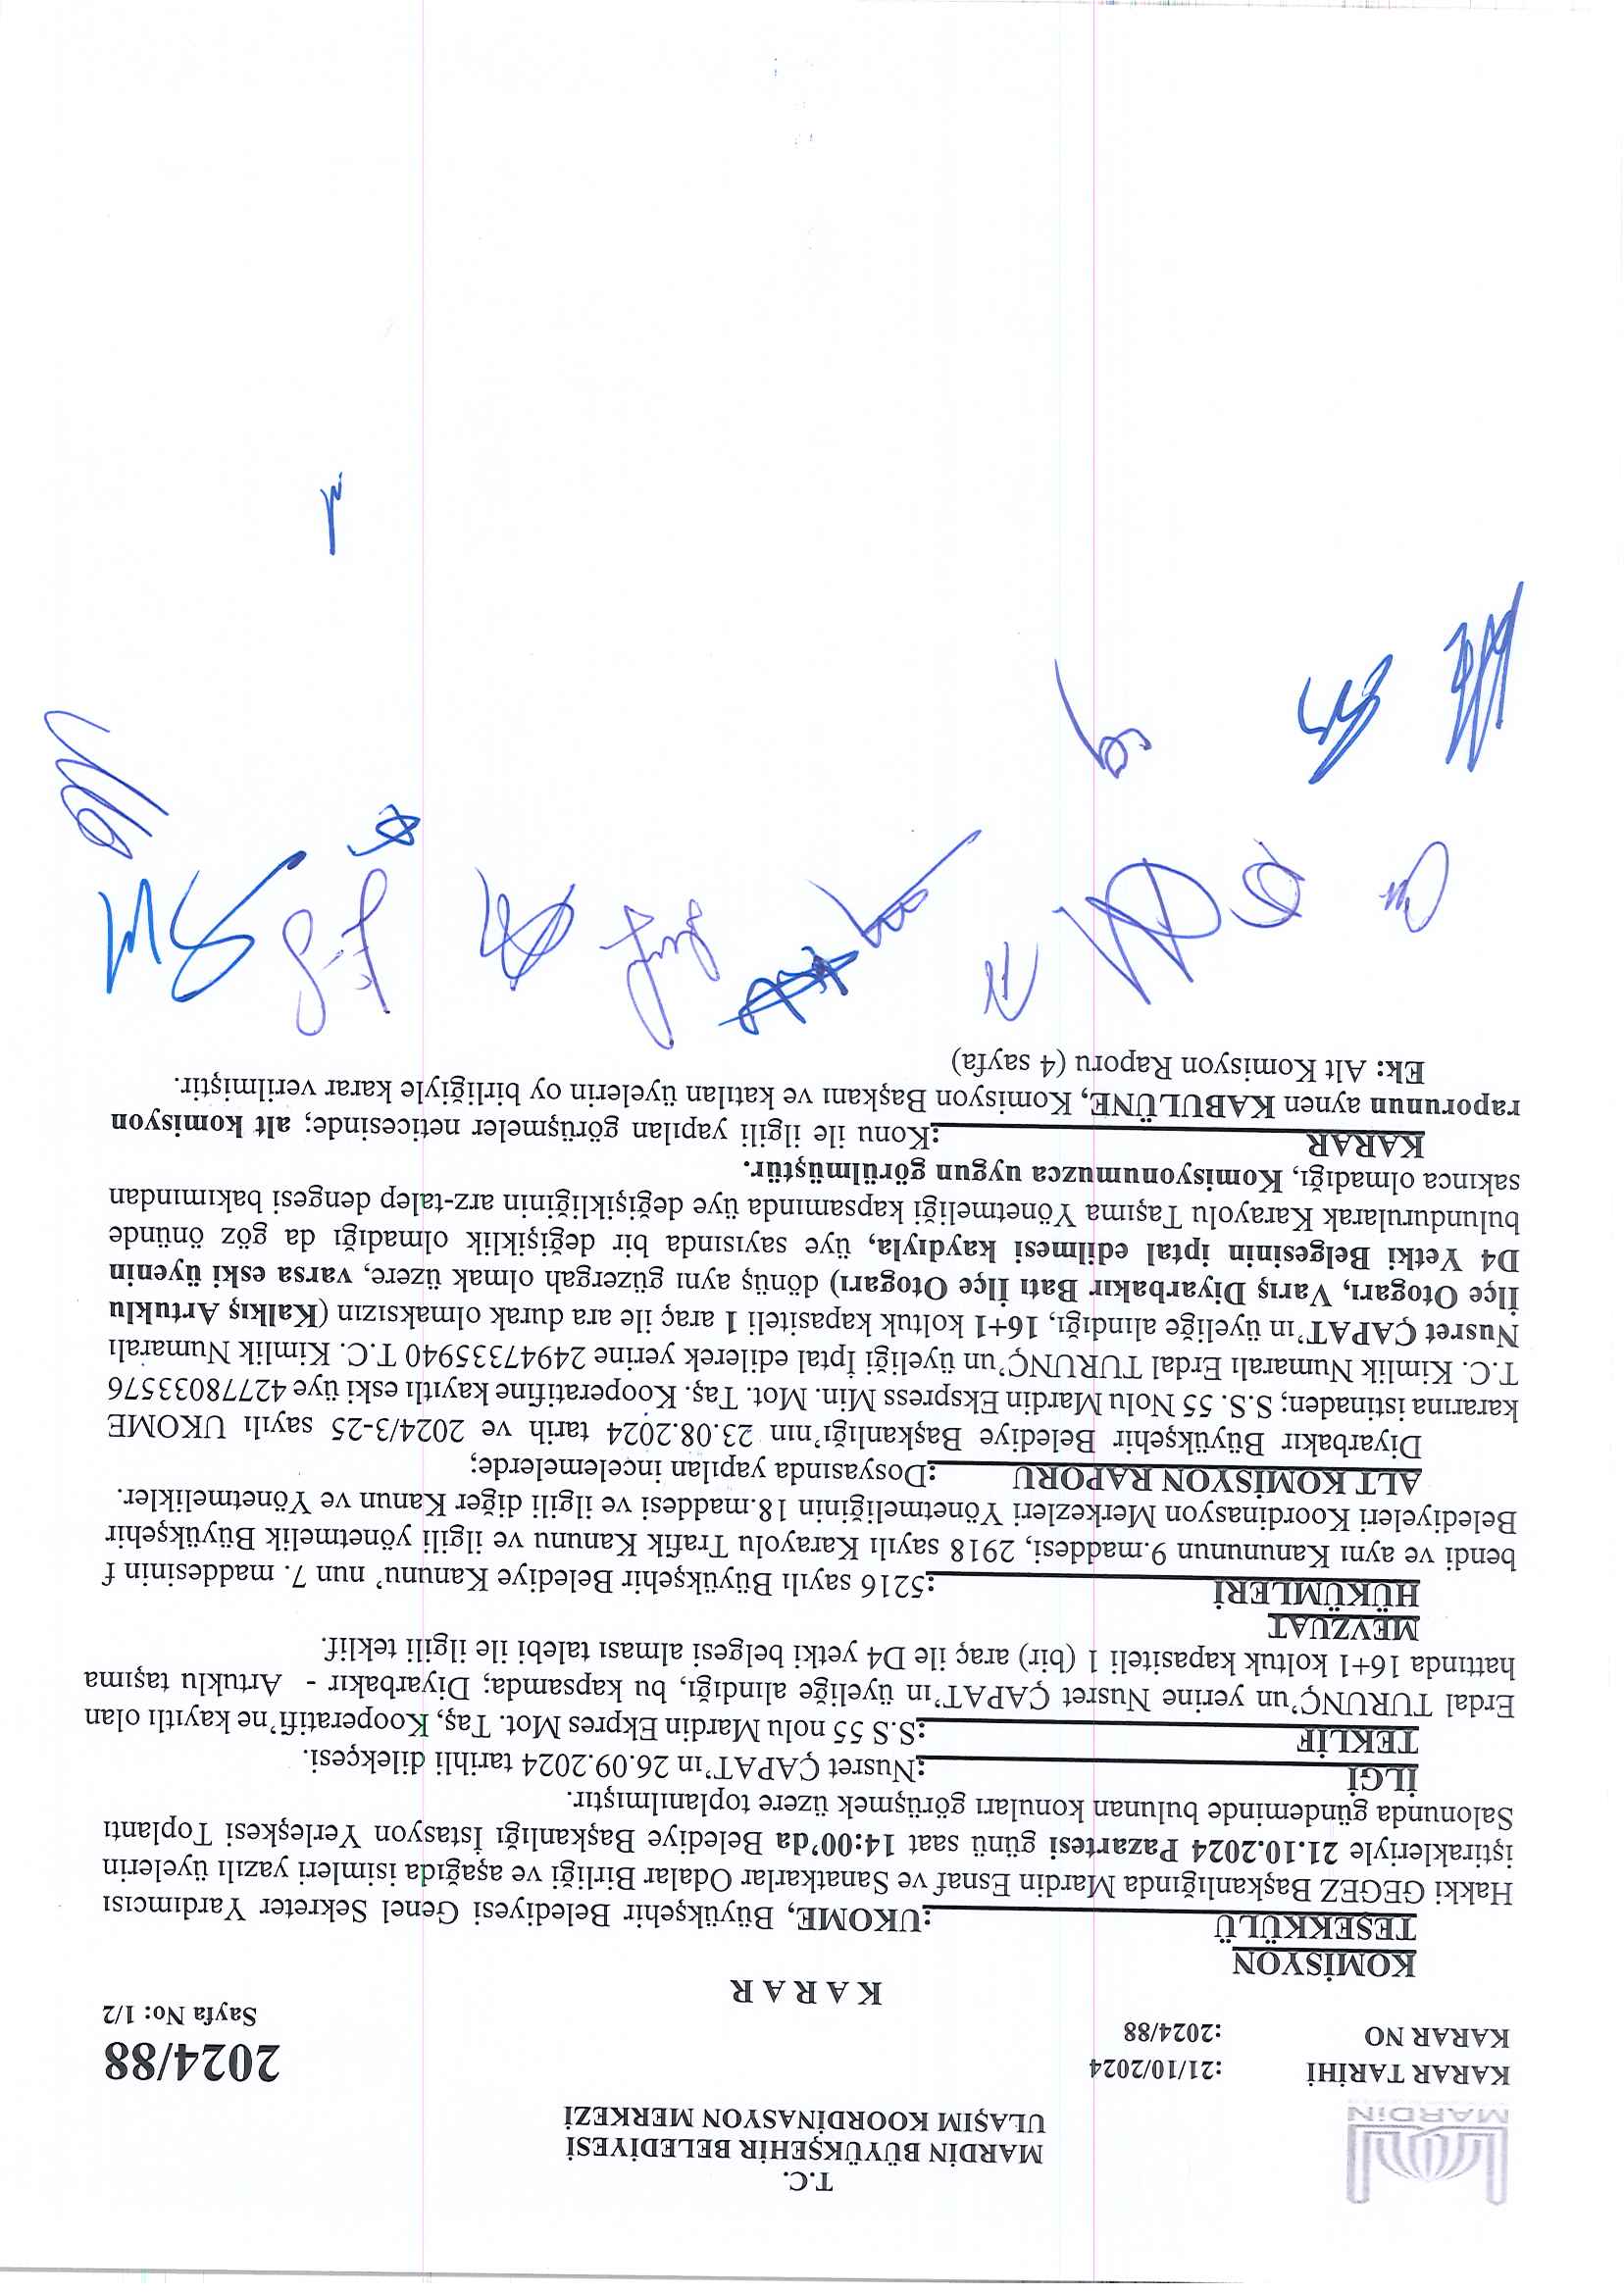 T.C.
MARDİN BÜYÜKŞEHİR BELEDİYESİ
ULAŞIM KOORDİNASYON MERKEZİ
MARDİN
KARAR TARİHİ :21/10/2024
2024/88
KARAR NO :2024/88
Sayfa No: 1/2
K A R A R
KOMİSYON
TEŞEKKÜLÜ :UKOME, Büyükşehir Belediyesi Genel Sekreter Yardımcısı
Hakki GEGEZ Başkanlığında Mardin Esnaf ve Sanatkarlar Odalar Birliği ve aşağıda isimleri yazılı üyelerin
iştirakleriyle 21.10.2024 Pazartesi günü saat 14:00'da Belediye Başkanlığı İstasyon Yerleşkesi Toplantı
Salonunda gündeminde bulunan konuları görüşmek üzere toplanılmıştır.
İLGİ :Nusret ÇAPAT'ın 26.09.2024 tarihli dilekçesi.
TEKLİF :S.S 55 nolu Mardin Ekpres Mot. Taş, Kooperatifi'ne kayıtlı olan
Erdal TURUNÇ'un yerine Nusret ÇAPAT'ın üyeliğe alındığı, bu kapsamda; Diyarbakır - Artuklu taşıma
hattında 16+1 koltuk kapasiteli 1 (bir) araç ile D4 yetki belgesi alması talebi ile ilgili teklif.
MEVZUAT
HÜKÜMLERİ :5216 sayılı Büyükşehir Belediye Kanunu' nun 7. maddesinin f
bendi ve aynı Kanununun 9.maddesi, 2918 sayılı Karayolu Trafik Kanunu ve ilgili yönetmelik Büyükşehir
Belediyeleri Koordinasyon Merkezleri Yönetmeliğinin 18.maddesi ve ilgili diğer Kanun ve Yönetmelikler.
ALT KOMİSYON RAPORU :Dosyasında yapılan incelemelerde;
Diyarbakır Büyükşehir Belediye Başkanlığı'nın 23.08.2024 tarih ve 2024/3-25 sayılı UKOME
kararına istinaden; S.S. 55 Nolu Mardin Ekspress Min. Mot. Taş. Kooperatifine kayıtlı eski üye 42778033576
T.C. Kimlik Numaralı Erdal TURUNÇ'un üyeliği İptal edilerek yerine 24947335940 T.C. Kimlik Numaralı
Nusret ÇAPAT'ın üyeliğe alındığı, 16+1 koltuk kapasiteli 1 araç ile ara durak olmaksızın (Kalkış Artuklu
İlçe Otogarı, Varış Diyarbakır Batı İlçe Otogarı) dönüş aynı güzergah olmak üzere, varsa eski üyenin
D4 Yetki Belgesinin iptal edilmesi kaydıyla, üye sayısında bir değişiklik olmadığı da göz önünde
bulundurularak Karayolu Taşıma Yönetmeliği kapsamında üye değişikliğinin arz-talep dengesi bakımından
sakınca olmadığı, Komisyonumuzca uygun görülmüştür.
KARAR :Konu ile ilgili yapılan görüşmeler neticesinde; alt komisyon
raporunun aynen KABULÜNE, Komisyon Başkanı ve katılan üyelerin oy birliğiyle karar verilmiştir.
Ek: Alt Komisyon Raporu (4 sayfa)